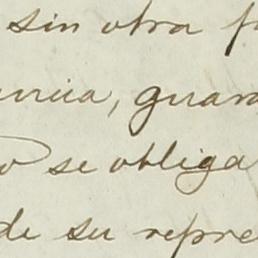 sin otra
guar
se obliga
de su repre